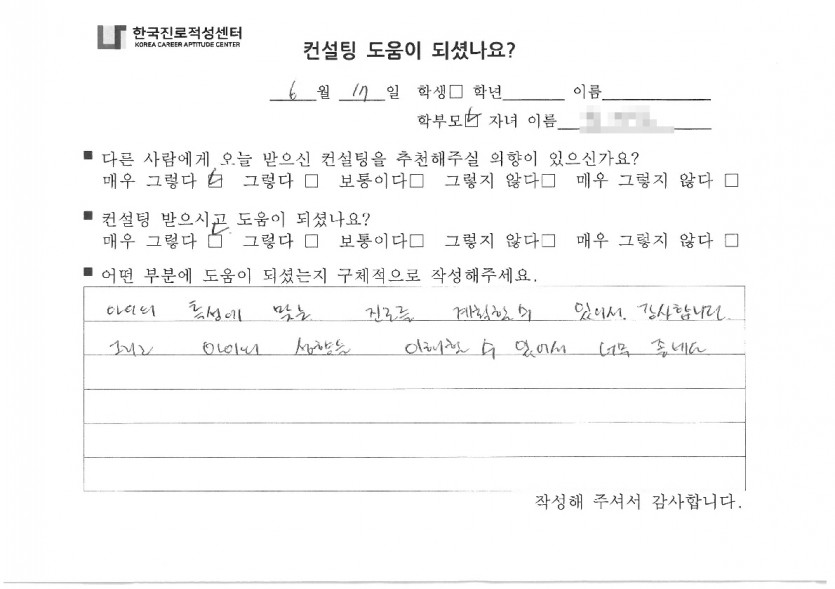 한국진로적성센터
KOREA CAREER APTITUDE CENTER
컨설팅 도움이 되셨나요?
6 월 17 일 학생□ 학년 이름
학부모☑ 자녀 이름
■ 다른 사람에게 오늘 받으신 컨설팅을 추천해주실 의향이 있으신가요?
매우 그렇다 ☑ 그렇다 □ 보통이다□ 그렇지 않다□ 매우 그렇지 않다 □
■ 컨설팅 받으시고 도움이 되셨나요?
매우 그렇다 ☑ 그렇다 □ 보통이다□ 그렇지 않다□ 매우 그렇지 않다 □
■ 어떤 부분에 도움이 되셨는지 구체적으로 작성해주세요.
아이의 특성에 맞는 진로를 계획할 수 있어서 감사합니다.
그리고 아이의 성향을 이해할 수 있어서 너무 좋네요
작성해 주셔서 감사합니다.